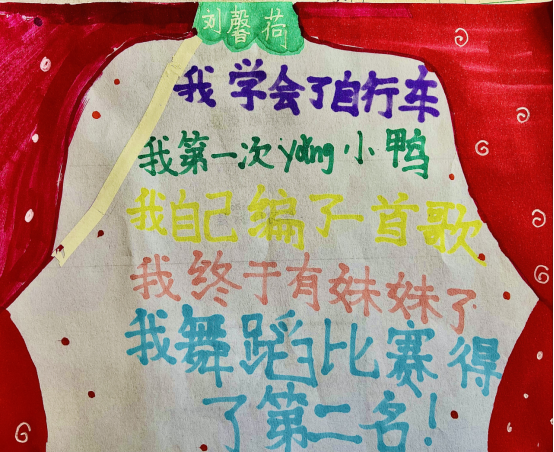 刘馨荷
我学会了自行车
我第一次yǎng小鸭
我自己编了一首歌
我终于有妹妹了
我舞蹈比赛得
了第二名！